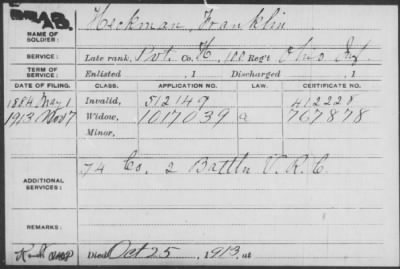 Heckman, Franklin
NAME OF SOLDIER:
SERVICE: Late rank, Pvt. Co. H, 100 Reg't Ohio Inf.
TERM OF SERVICE: Enlisted , 1 Discharged , 1
DATE OF FILING. CLASS. APPLICATION NO. LAW. CERTIFICATE NO.
1884 May 1 Invalid, 512149 412228
1913 Nov 7 Widow, 1017039 a 767878
Minor,
74 Co. 2 Battln V.R.C.
ADDITIONAL SERVICES:
REMARKS:
Died Oct 25, 1913, at